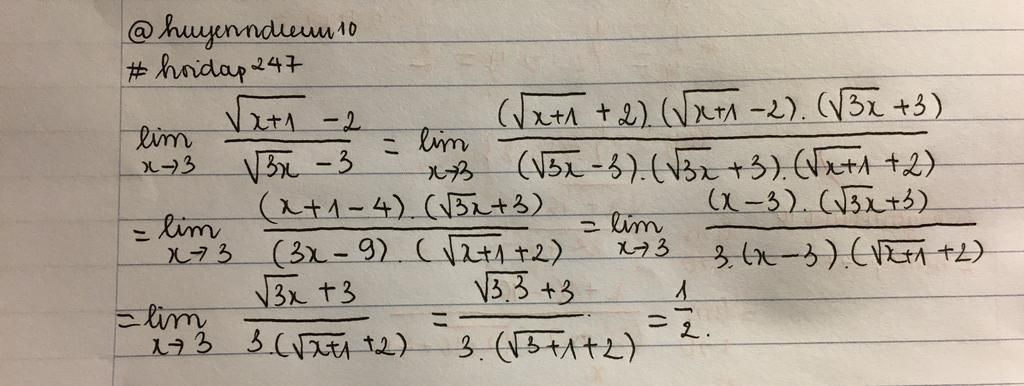 @huyenndieuu10
# hoidap247
lim x→3 (√(x+1) - 2)/(√(3x) - 3) = lim x→3 ((√(x+1) + 2).(√(x+1) - 2).(√(3x) + 3))/((√(3x) - 3).(√(3x) + 3).(√(x+1) + 2))
= lim x→3 ((x+1-4).(√(3x)+3))/((3x-9).(√(x+1)+2)) = lim x→3 ((x-3).(√(3x)+3))/(3.(x-3).(√(x+1)+2))
= lim x→3 (√(3x) + 3)/(3.(√(x+1) + 2)) = (√(3.3) + 3)/(3.(√(3+1) + 2)) = 1/2.